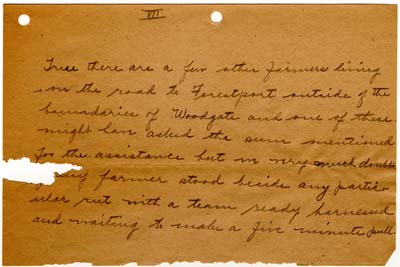 VII
True there are a few other farmers living
on the road to Forestport outside of the
boundaries of Woodgate and one of these
might have asked the sum mentioned
for the assistance but very much doubt
any farmer stood beside any partic-
ular rut with a team ready harnessed
and waiting to make a five minute pull.